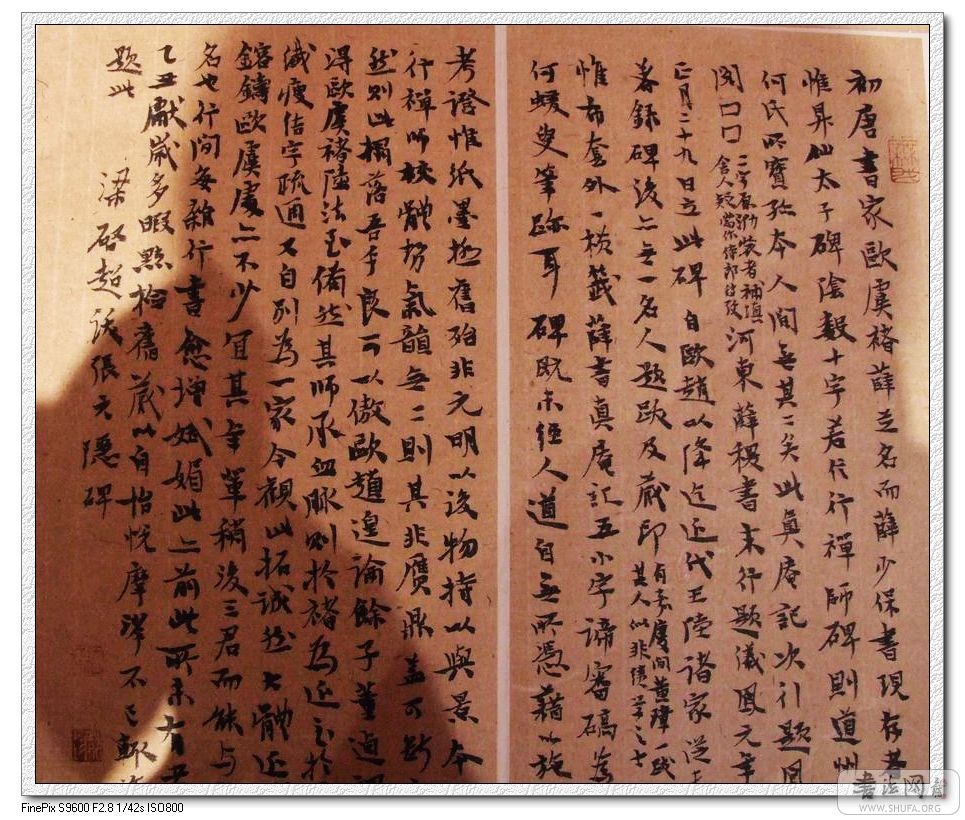 初唐書家歐虞褚薛並名而薛少保書現存者
惟昇仙太子碑陰數十字若信行禪師碑則道州
何氏所寶孤本人間無其二矣此真庵記次行題
閣口口 二字原 裝者補填 舍人疑當作侍郎待攷 河東薛稷書末行題儀鳳元年
正月二十九日立此碑自歐趙以降迄近代王陸諸家從未
著錄碑後亦無一名人題欧及藏印
惟布套外一橫籤薛書真庵記五小字諦審確為
何蝯叟筆跡耳碑既未經人道自無所憑藉以施
考證惟紙墨極舊殆非元明以後物持以與景本
行禪師校體勢氣韻無二則其非贗鼎蓋可斷
然則此搨落吾手良可以傲歐趙遑論餘子董逌謂
得歐虞褚陸法至備然其師承血脈則於褚為近至於
纖瘦結字疏通又自別為一家今觀此拓誠然大體近
鎔鑄歐虞處亦不少宜其年輩稍後三君而能與
名也行間每雜行書愈增斌媚此亦前此所未有者
乙丑獻歲多暇點檢舊藏以自怡悅摩挲不已輒
題此
梁啟超 張元 碑
FinePix S9600 F2.8 1/42s ISO800
書法网
WWW.SHUFA.ORG